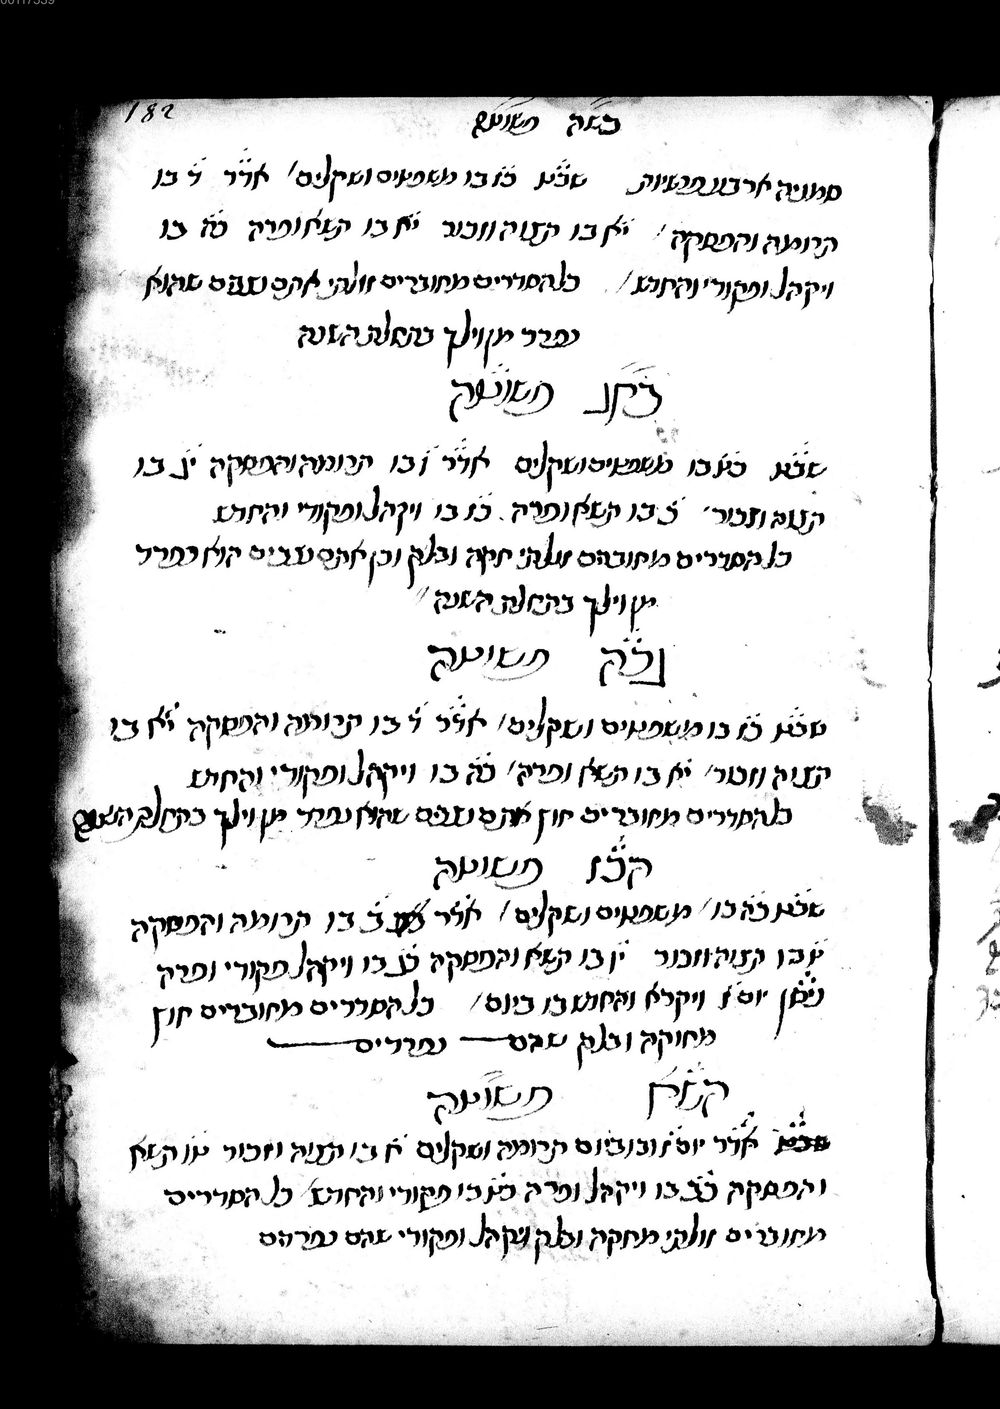 182
בשה פשוטה
סמניה ארבע פרשיות שבט כז בו משפטים ושקלים אדר ד בו
תרומה והפסקה יא בו תצוה וזכור יא בו תשא ופרה כה בו
ויקהל ופקודי והחדש כל הסדרים מחוברים זולתי אתם נצבים שהוא
נפרד מן וילך בתחלת השנה
פשוטה
שבט כט בו משפטים ושקלים אדר ו בו תרומה והפסקה יג בו
תצוה וזכור כ בו תשא ופרה כז בו ויקהל ופקודי והחדש
כל הסדרים מחוברים זולתי חקה ובלק וכן אתם נצבים הוא נפרד
מן וילך בתחלת השנה
פשוטה
שבט כז בו משפטים ושקלים אדר ד בו תרומה והפסקה יא בו
תצוה וזכור יא בו תשא ופרה כה בו ויקהל ופקודי והחדש
כל הסדרים מחוברים חוץ אתם נצבים שהוא נפרד מן וילך בתחלת השנה
פשוטה
שבט כה בו משפטים ושקלים אדר ב בו תרומה והפסקה
בו תצוה וזכור בו תשא והפסקה כג בו ויקהל פקודי ופרה
ניסן יום ויקרא והחדש בו ביום כל הסדרים מחוברים חוץ
מחוקה ובלק שהם נפרדים
פשוטה
אדר יום ובו ביום תרומה ושקלים בו תצוה וזכור תשא
והפסקה כב בו ויקהל ופרה כט בו פקודי והחדש כל הסדרים
מחוברים זולתי מחקה ובלק ויקהל ופקודי שהם נפרדים